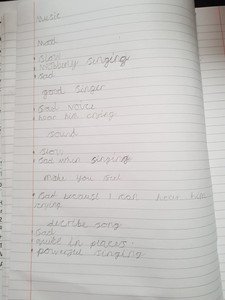 music
mood
• slow
• singing
• sad
good singer
• sad voice
• hear him crying
sound
• slow
• sad when singing
make you feel
• sad because I can hear him
crying
decribe song
• sad
• quiet in places.
• powerful singing